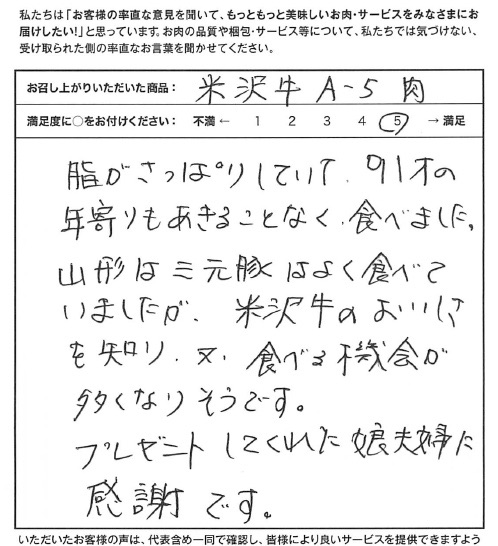 私たちは「お客様の率直な意見を聞いて、もっともっと美味しいお肉・サービスをみなさまにお
届けしたい!」と思っています。お肉の品質や梱包・サービス等について、私たちでは気づけない、
受け取られた側の率直なお言葉を聞かせてください。
お召し上がりいただいた商品： 米沢牛 A-5 肉
満足度に○をお付けください： 不満 ← 1 2 3 4 5 → 満足
脂がさっぱりしていて、91才の
年寄りもあきることなく、食べました。
山形は三元豚はよく食べて
いましたが、米沢牛のおいしさ
を知り、又、食べる機会が
多くなりそうです。
プレゼントしてくれた娘夫婦に
感謝です。
いただいたお客様の声は、代表含め一同で確認し、皆様により良いサービスを提供できますよう